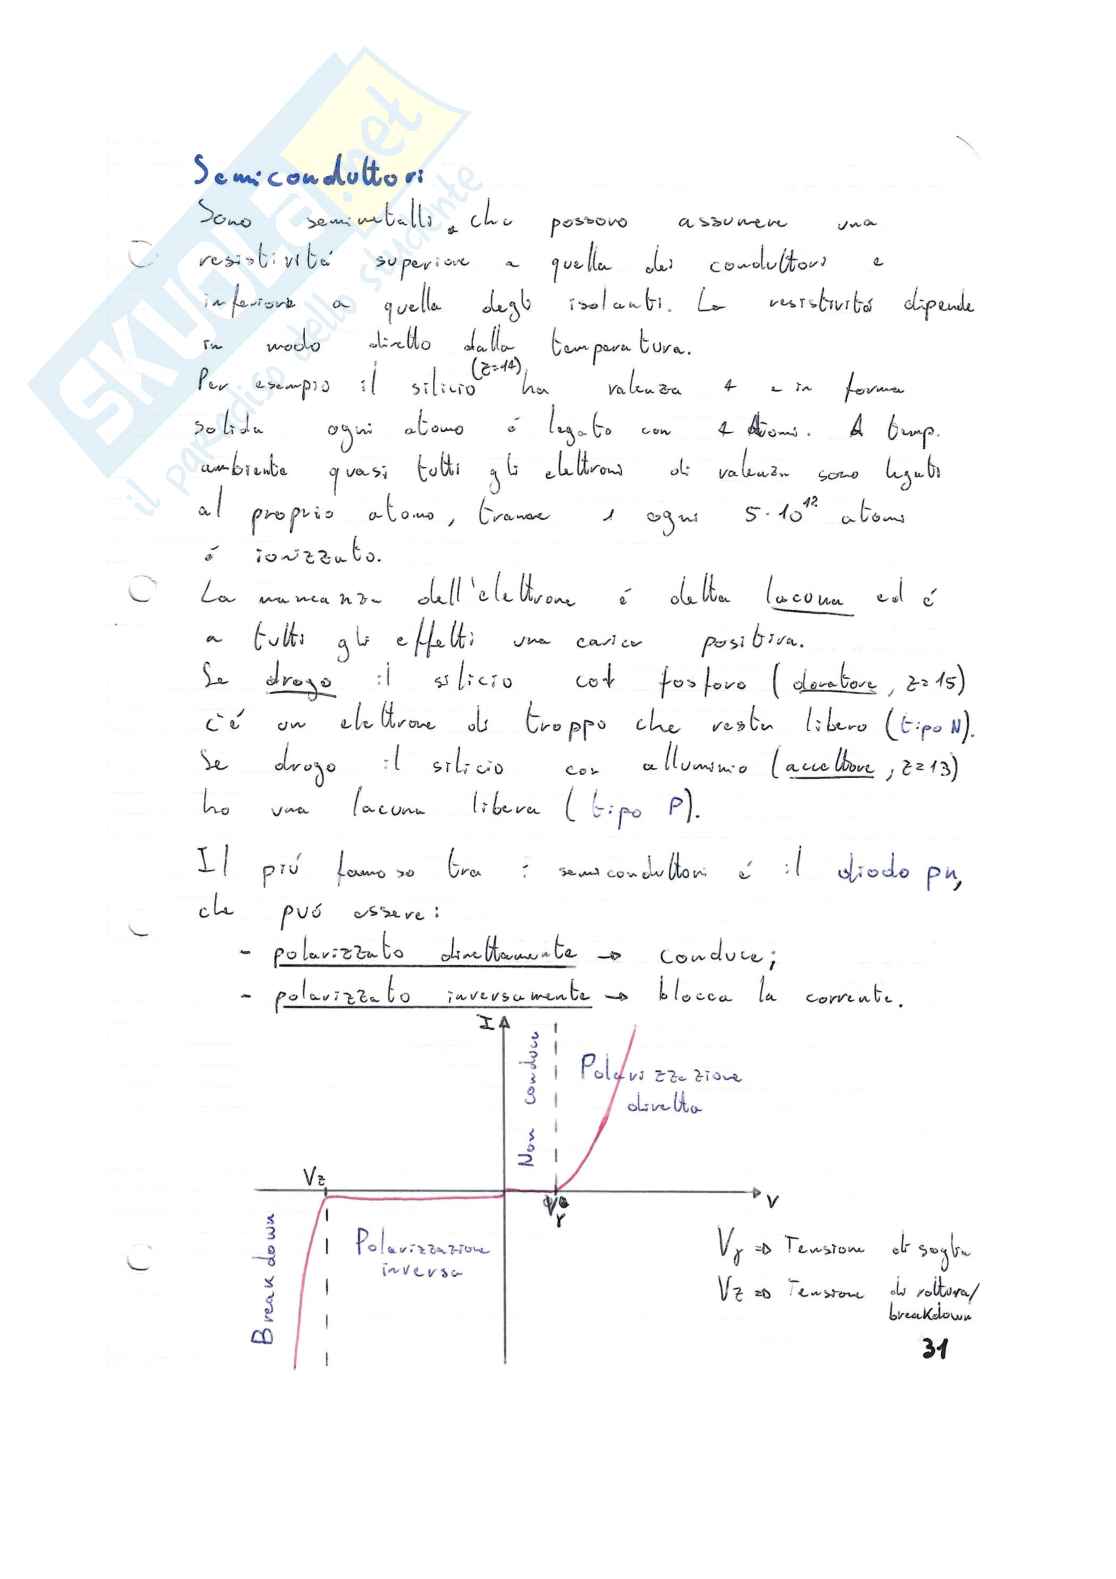 SKUOLA.net
il paradiso dello studente
Semiconduttori
Sono semimetalli, che possono assumere una
resistività superiore a quella dei conduttori e
inferiore a quella degli isolanti. La resistività dipende
in modo diretto dalla temperatura.
Per esempio il silicio (Z=14) ha valenza 4 e in forma
solida ogni atomo é legato con 4 Atomi. A temp.
ambiente quasi tutti gli elettroni di valenza sono legati
al proprio atomo, tranne 1 ogni 5·10¹² atomi
é ionizzato.
La mancanza dell'elettrone é detta lacuna ed é
a tutti gli effetti una carica positiva.
Se drogo il silicio col fosforo (donatore, Z=15)
c'é un elettrone di troppo che resta libero (tipo N).
Se drogo il silicio con alluminio (accettore, Z=13)
ho una lacuna libera (tipo P).
Il piú famoso tra i semiconduttori é il diodo pn,
che puó essere:
- polarizzato direttamente → conduce;
- polarizzato inversamente → blocca la corrente.
I
Non conduce
Polarizzazione
diretta
Vz
Vγ
V
Breakdown
Polarizzazione
inversa
Vγ ⇒ Tensione di soglia
Vz ⇒ Tensione di rottura/
breakdown
31